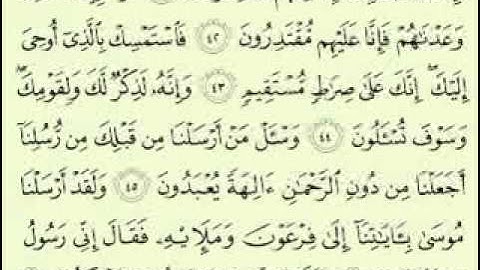 وَعَدْنَٰهُمْ فَإِنَّا عَلَيْهِم مُّقْتَدِرُونَ ٤٢ فَٱسْتَمْسِكْ بِٱلَّذِىٓ أُوحِىَ
إِلَيْكَ ۖ إِنَّكَ عَلَىٰ صِرَٰطٍ مُّسْتَقِيمٍ ٤٣ وَإِنَّهُۥ لَذِكْرٌ لَّكَ وَلِقَوْمِكَ ۖ
وَسَوْفَ تُسْـَٔلُونَ ٤٤ وَسْـَٔلْ مَنْ أَرْسَلْنَا مِن قَبْلِكَ مِن رُّسُلِنَآ
أَجَعَلْنَا مِن دُونِ ٱلرَّحْمَٰنِ ءَالِهَةً يُعْبَدُونَ ٤٥ وَلَقَدْ أَرْسَلْنَا
مُوسَىٰ بِـَٔايَٰتِنَآ إِلَىٰ فِرْعَوْنَ وَمَلَإِيْهِۦ فَقَالَ إِنِّى رَسُولُ